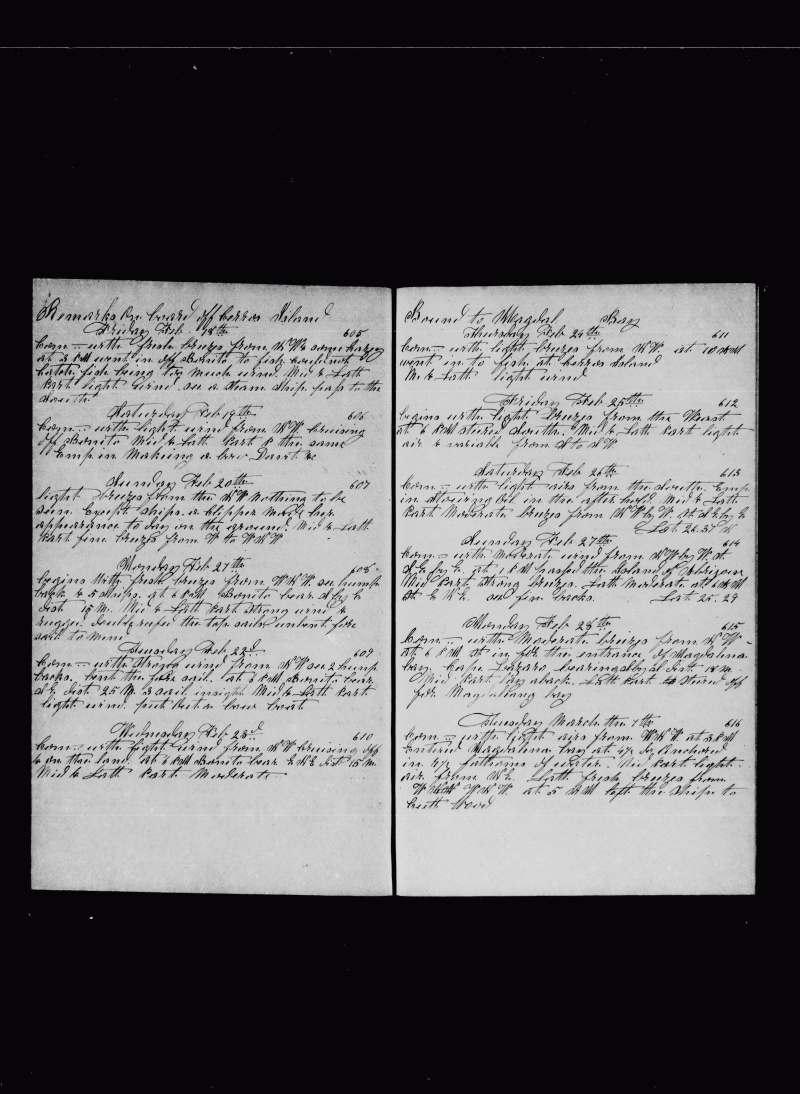 Remarks On board off Cerros Island
Friday Feb 18th 605
Com= with fresh breezes from NW & some hazey
at 3 PM went in off Bonito to fish, could not
catch fish being too much wind. Mid & Latt
Part light wind. see a Steam Ship pass to the
South
Saturday Feb 19th 606
Com= with light wind from NW Cruising
off Bonito Mid & Latt Part the same
Emp in Makeing a bow Davit &c
Sunday Feb 20th 607
light breezes from the NW Nothing to be
seen Except Ships. a Clipper Made her
appearance to day in the ground. Mid & Latt
Part fine breezes from W to WNW
Monday Feb 21th 608
begins With fresh breezes from WNW see hump
back & 5 ships. at 6 PM Bonito bear S by E
dist 15 M. Mid & Latt Part Strong wind &
rugged. Double reefes the top sails unbent fore
sail to Mend
Tuesday Feb 22d 609
Com= with Strong wind from NW see 2 hump
backs. bent the fore sail. at 6 PM Bonito bears
SE dist 25 M. 3 sail insight Mid & Latt Part
light wind. put out a bow boat
Wednesday Feb 23d 610
Com= with light wind from NW Cruising off
& on the land. at 6 PM Bonito bear ENE dist 15 M.
Mid & Latt Part Moderate
Bound to Magdal Bay
Thursday Feb 24th 611
Com= with light breezes from NW. at 10 AM
went in to fish at Cerros Island
Mid & Latt light wind
Friday Feb 25th 612
begins with light breezes from the West
at 6 PM Stered South. Mid & Latt Part light
air & variable from S to SW
Saturday Feb 26th 613
Com= with light airs from the South. Emp
in Stowing Oil in the after hold Mid & Latt
Part Moderate breezes from NW by W. St S by E
Lat 26.37 N
Sunday Feb 27th 614
Com= with Moderate wind from NW by W. St
SE by E. at 1 PM passed the Island of
Mid Part Strong breezes. Latt Moderate at 6 AM
St ENE. see fin backs. Lat 25.29
Monday Feb 28th 615
Com= with Moderate breezes from NW
at 6 PM St in for the entrance of Magdalena
bay. Cape Lazaro bearing dist 18 M
Mid Part lay aback. Latt Part Stered off
for Magdalena bay
Tuesday March the 1th 616
Com= with light airs from WNW at 3 PM
Entered Magdalena bay at Anchored
in fathoms of water. Mid Part light
air from NE. Latt fresh breezes from
WNW at 5 AM left the Ship to
cutt Wood